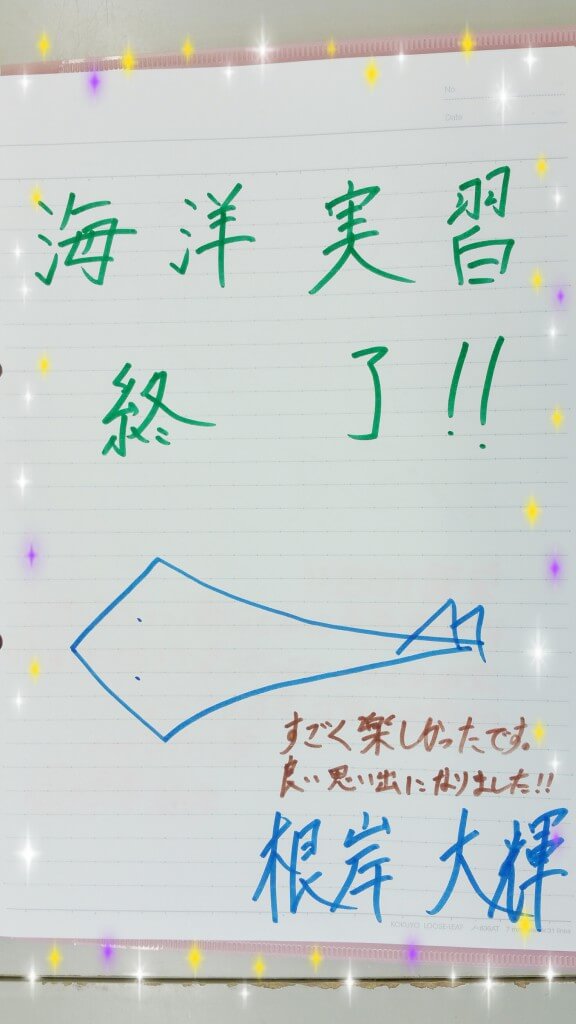 No.
Date
海洋実習
終了!!
すごく楽しかったです。
良い思い出になりました!!
根岸大輝
KOKUYO LOOSE-LEAF